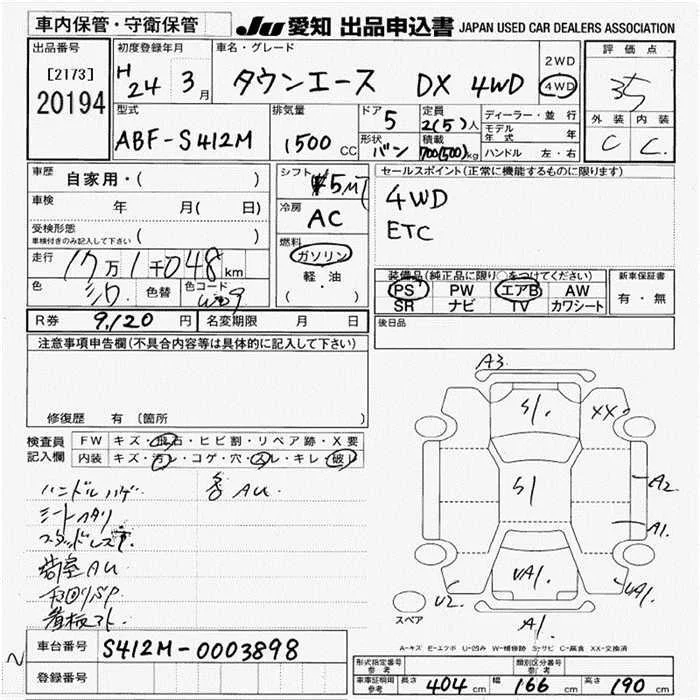 車内保管・守衛保管
JU 愛知 出品申込書 JAPAN USED CAR DEALERS ASSOCIATION
出品番号
[2173]
20194
初度登録年月
H 24 3月
車名・グレード
タウンエース DX 4WD
2WD
4WD
評価点
3.5
外装 内装
C C
型式
ABF-S412M
排気量
1500 CC
ドア 5
形状 バン
定員 2(5)人
積載 700(500)kg
ディーラー・並行
モデル年式 年
ハンドル 左・右
車歴 自家用・( )
車検 年 月( 日)
受検形態 ( )
車検付きのみ記入して下さい
走行 17万1千048km
色 シロ 色替 色コード W09
シフト 5MT
冷房 AC
燃料
ガソリン
軽油
( ・ )
セールスポイント(正常に機能するものに限ります)
4WD
ETC
装備品(純正品に限り○をつけてください)
PS PW エアB AW
SR ナビ TV カワシート
新車保証書
有・無
R券 9,120円 名変期限 月 日
後日品
注意事項申告欄(不具合内容等は具体的に記入して下さい)
修復歴 有 〔箇所 〕
検査員記入欄
FW キズ・飛石・ヒビ割・リペア跡・X要
内装 キズ・汚レ・コゲ・穴・スレ・キレ・破レ
ハンドルハゲ
シートヘタリ
スタッドレス
荷室AU
下回りSP
看板アト
AU.
A3
S1.
XX
S1
A2
A1.
UA1.
U2
UA1.
A1.
スペア
A-キズ E-エクボ U-凹み W-補修跡 S-サビ C-腐食 XX-交換済
車台番号 S412M-0003898
登録番号
形式指定番号 参考
類別区分番号 参考
車庫証明用 参考 長さ 404cm 幅 166cm 高さ 190cm